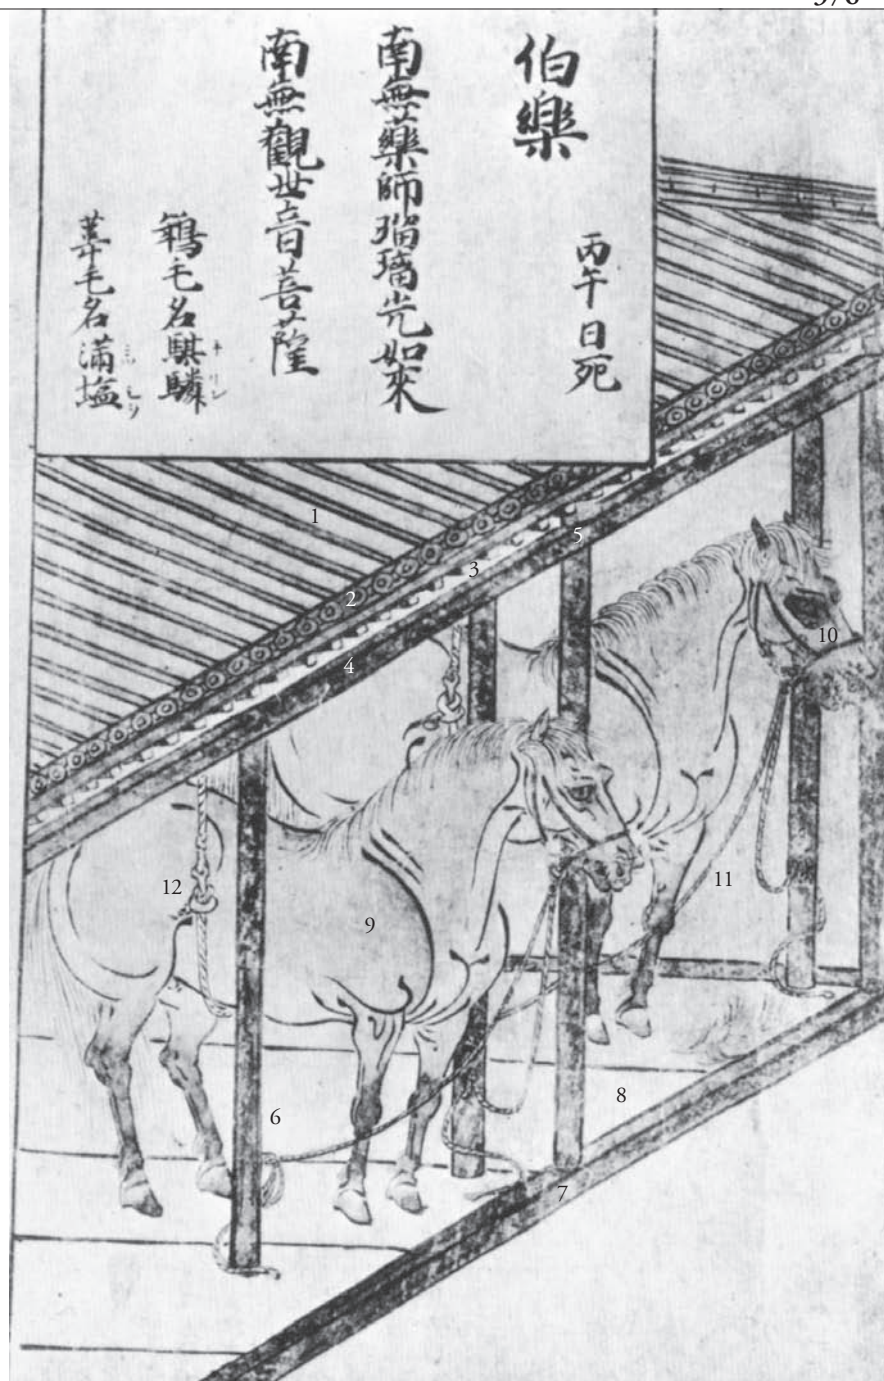 伯樂
丙午日死
南無藥師瑠璃光如來
南無觀世音菩薩
鵇毛名騏驎
キリン
葦毛名滿塩
1
2
3
4
5
6
7
8
9
10
11
12